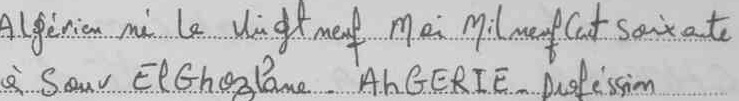 Algérien né le vingt neuf Mai Mil neuf Cent soixante
à Sour ElGhozlane - AhGERIE - Profession